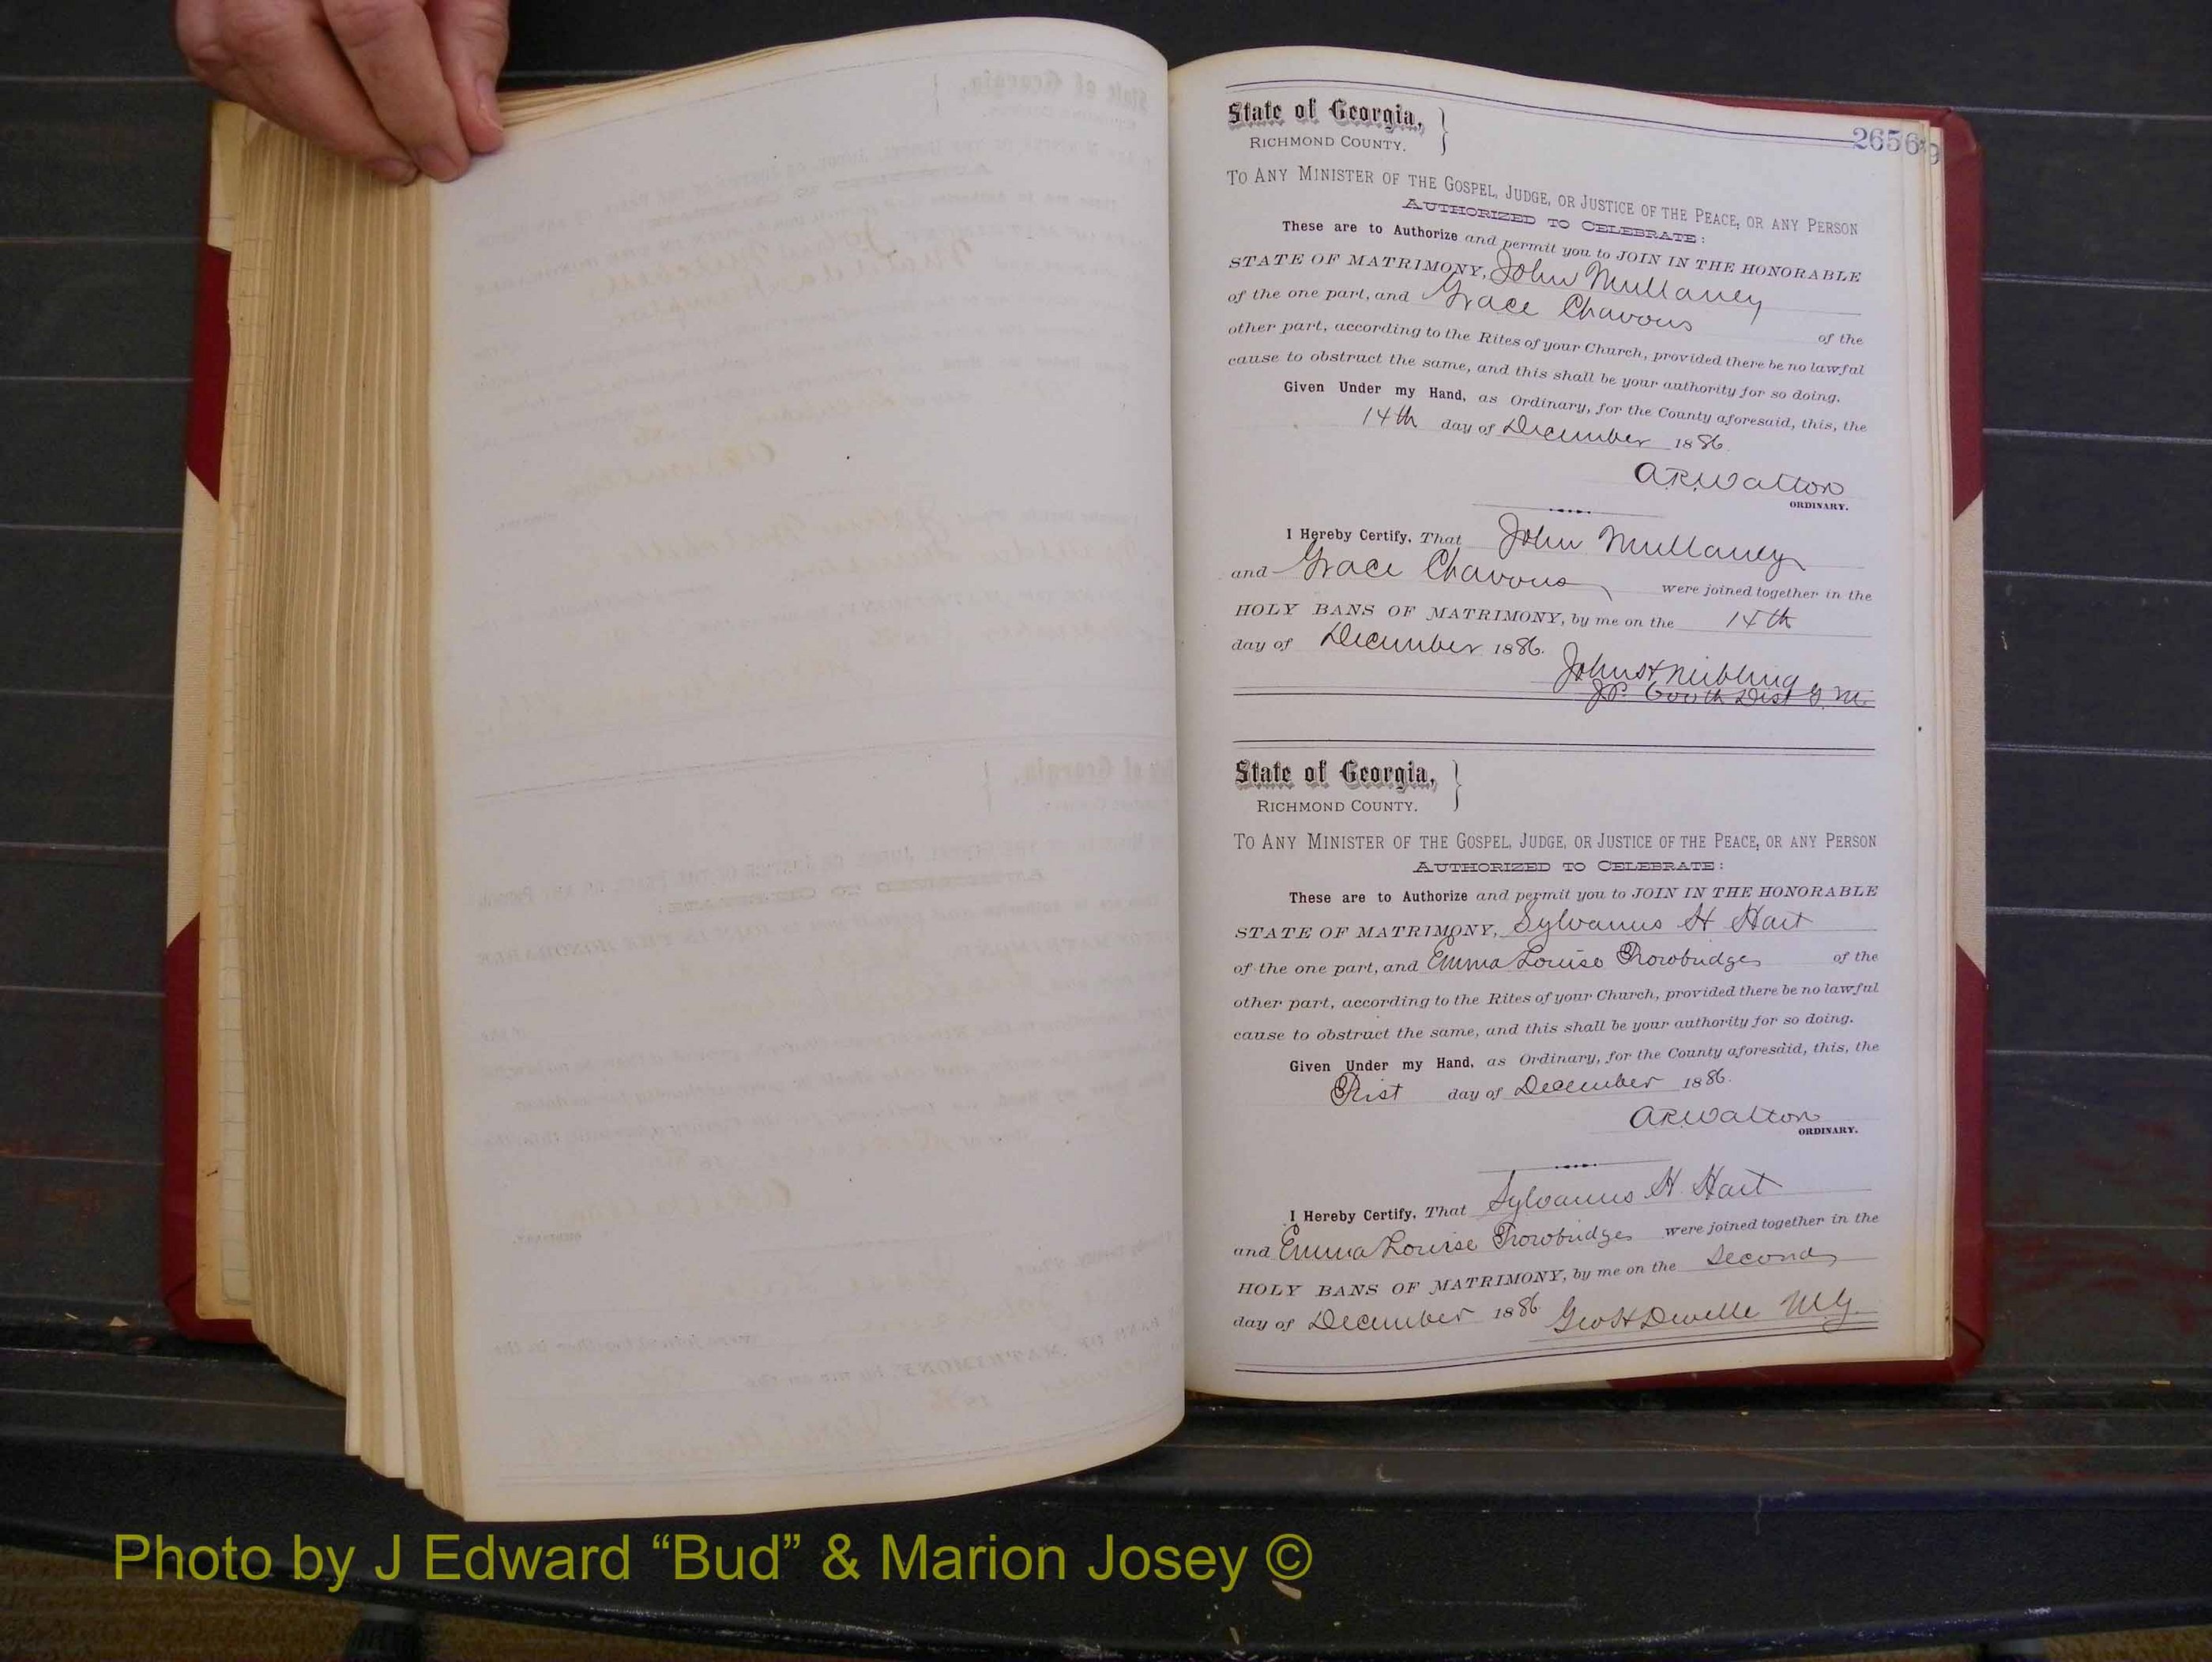 265
State of Georgia,
RICHMOND COUNTY.
TO ANY MINISTER OF THE GOSPEL, JUDGE, OR JUSTICE OF THE PEACE, OR ANY PERSON
AUTHORIZED TO CELEBRATE:
These are to Authorize and permit you to JOIN IN THE HONORABLE
STATE OF MATRIMONY, John Mullaney
of the one part, and Grace Chavous of the
other part, according to the Rites of your Church, provided there be no lawful
cause to obstruct the same, and this shall be your authority for so doing.
Given Under my Hand, as Ordinary, for the County aforesaid, this, the
14th day of December 1886.
A.R. Walton
ORDINARY.
I Hereby Certify, That John Mullaney
and Grace Chavous were joined together in the
HOLY BANS OF MATRIMONY, by me on the
day of December 1886.
JP. 600th Dist G. M.
State of Georgia,
RICHMOND COUNTY.
TO ANY MINISTER OF THE GOSPEL, JUDGE, OR JUSTICE OF THE PEACE, OR ANY PERSON
AUTHORIZED TO CELEBRATE:
These are to Authorize and permit you to JOIN IN THE HONORABLE
STATE OF MATRIMONY, Sylvanus H Hart
of the one part, and Emma Louise Trowbridge of the
other part, according to the Rites of your Church, provided there be no lawful
cause to obstruct the same, and this shall be your authority for so doing.
Given Under my Hand, as Ordinary, for the County aforesaid, this, the
First day of December 1886.
A R Walton
ORDINARY.
I Hereby Certify, That Sylvanus H. Hart
and Emma Louise Trowbridge were joined together in the
HOLY BANS OF MATRIMONY, by me on the Second
day of December 1886. Geo H M.G.
Photo by J Edward “Bud” & Marion Josey ©